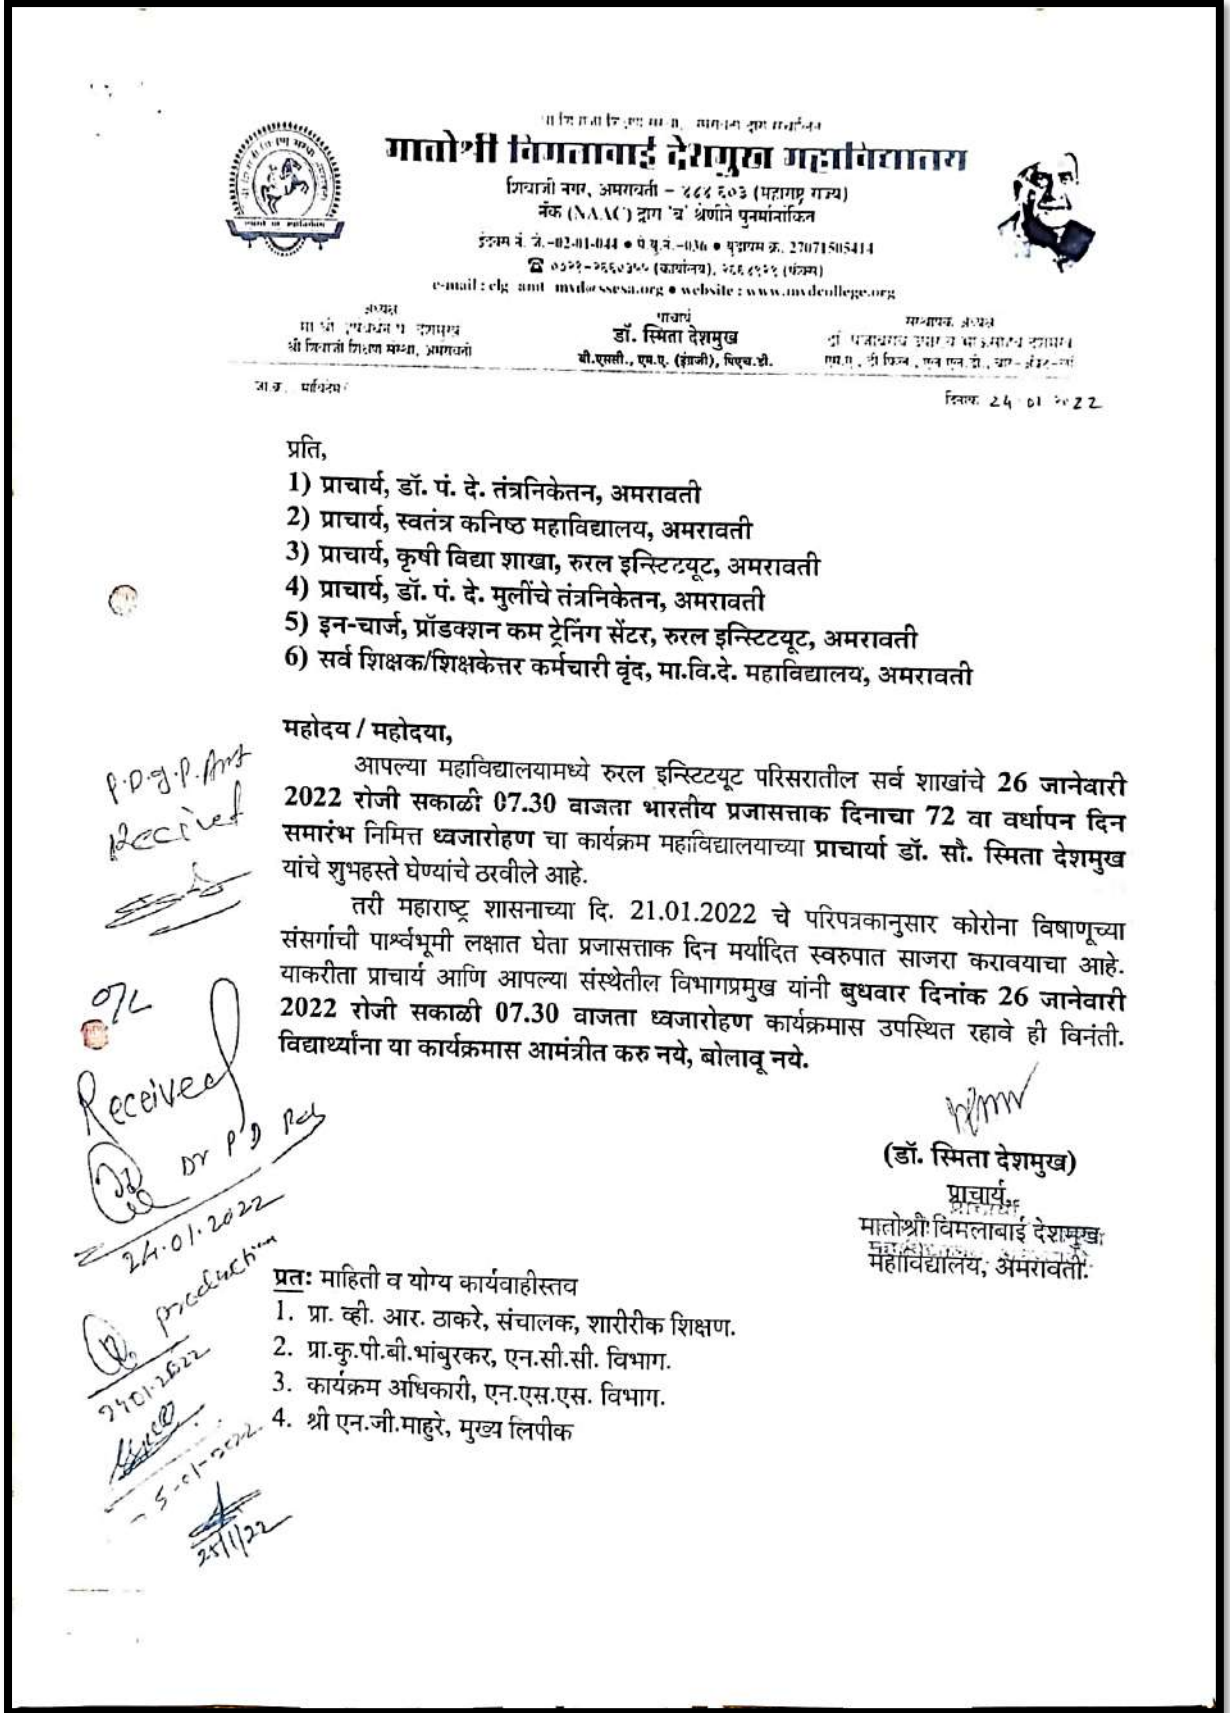 मातोश्री विमलाबाई देशमुख महाविद्यालय
शिवाजी नगर, अमरावती – ४४४ ६०३ (महाराष्ट्र राज्य)
नॅक (NAAC) द्वारा 'ब' श्रेणीने पुनर्मानांकित
इंडेक्स नं. जे.–02-01-044 ● पे.यु.नं.–036 ● युडायस क्र. 27071505414
(कार्यालय),
● website : www.mvdcollege.org
अध्यक्ष
श्री शिवाजी शिक्षण संस्था, अमरावती
प्राचार्य
डॉ. स्मिता देशमुख
बी.एससी., एम.ए. (इंग्रजी), पिएच.डी.
संस्थापक अध्यक्ष
दिनांक 24 01 2022
प्रति,
1) प्राचार्य, डॉ. पं. दे. तंत्रनिकेतन, अमरावती
2) प्राचार्य, स्वतंत्र कनिष्ठ महाविद्यालय, अमरावती
3) प्राचार्य, कृषी विद्या शाखा, रुरल इन्स्टिटयूट, अमरावती
4) प्राचार्य, डॉ. पं. दे. मुलींचे तंत्रनिकेतन, अमरावती
5) इन-चार्ज, प्रॉडक्शन कम ट्रेनिंग सेंटर, रुरल इन्स्टिटयूट, अमरावती
6) सर्व शिक्षक/शिक्षकेत्तर कर्मचारी वृंद, मा.वि.दे. महाविद्यालय, अमरावती
महोदय / महोदया,
आपल्या महाविद्यालयामध्ये रुरल इन्स्टिटयूट परिसरातील सर्व शाखांचे 26 जानेवारी
2022 रोजी सकाळी 07.30 वाजता भारतीय प्रजासत्ताक दिनाचा 72 वा वर्धापन दिन
समारंभ निमित्त ध्वजारोहण चा कार्यक्रम महाविद्यालयाच्या प्राचार्या डॉ. सौ. स्मिता देशमुख
यांचे शुभहस्ते घेण्यांचे ठरवीले आहे.
तरी महाराष्ट्र शासनाच्या दि. 21.01.2022 चे परिपत्रकानुसार कोरोना विषाणूच्या
संसर्गाची पार्श्वभूमी लक्षात घेता प्रजासत्ताक दिन मर्यादित स्वरुपात साजरा करावयाचा आहे.
याकरीता प्राचार्य आणि आपल्या संस्थेतील विभागप्रमुख यांनी बुधवार दिनांक 26 जानेवारी
2022 रोजी सकाळी 07.30 वाजता ध्वजारोहण कार्यक्रमास उपस्थित रहावे ही विनंती.
विद्यार्थ्यांना या कार्यक्रमास आमंत्रीत करु नये, बोलावू नये.
P.D.
Recived
O/L
Received
Dr P D
24.01.2022
production
2401.2022
25/1/22
(डॉ. स्मिता देशमुख)
प्राचार्य,
मातोश्री विमलाबाई देशमुख
महाविद्यालय, अमरावती.
प्रत: माहिती व योग्य कार्यवाहीस्तव
1. प्रा. व्ही. आर. ठाकरे, संचालक, शारीरीक शिक्षण.
2. प्रा.कु.पी.बी.भांबुरकर, एन.सी.सी. विभाग.
3. कार्यक्रम अधिकारी, एन.एस.एस. विभाग.
4. श्री एन.जी.माहुरे, मुख्य लिपीक